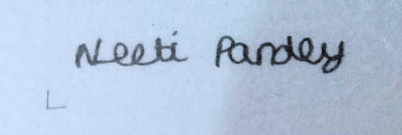 Neeti Pandey